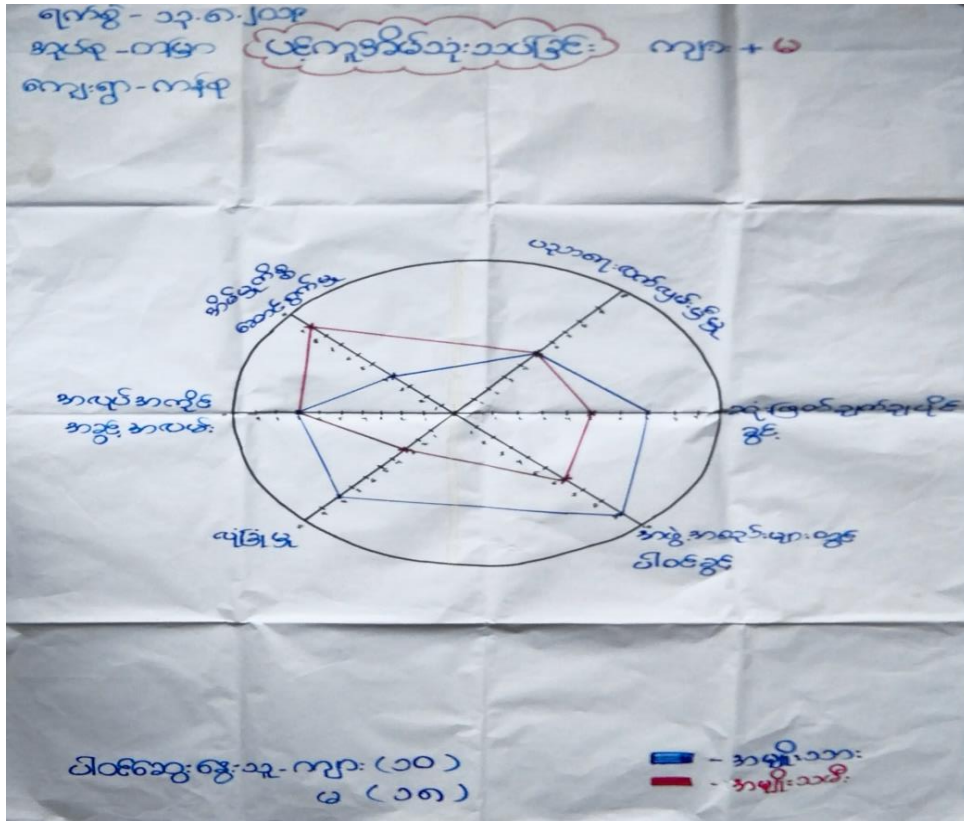 ရက်စွဲ - ၁၃.၈.၂၀၁၈
အုပ်စု - တမြှာ
ကျေးရွာ - ကန်စု
ပင့်ကူအိမ်သုံးသပ်ခြင်း
ကျား + မ
ပညာရေး လက်လှမ်းမှီမှု
အိမ်မှုကိစ္စ
ဆောင်ရွက်မှု
အလုပ်အကိုင်
အခွင့်အလမ်း
ဆုံးဖြတ်ချက်ချပိုင်
ခွင့်
လုံခြုံမှု
အဖွဲ့အစည်းများတွင်
ပါဝင်ခွင့်
ပါဝင်ဆွေးနွေးသူ - ကျား (၁၀)
မ (၁၈)
- အမျိုးသား
- အမျိုးသမီး